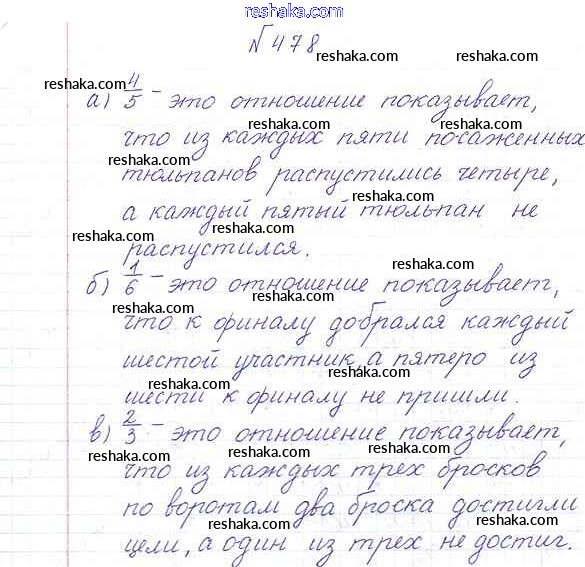 www.reshaka.com
№ 478
reshaka.com reshaka.com
reshaka.com
а) 4/5 – это отношение показывает,
reshaka.com reshaka.com
что из каждых пяти посаженных
reshaka.com
тюльпанов распустились четыре,
reshaka.com
а каждый пятый тюльпан не
reshaka.com
распустился.
reshaka.com
б) 1/6 – это отношение показывает,
reshaka.com
что к финалу добрался каждый
reshaka.com
шестой участник, а пятеро из
reshaka.com
шести к финалу не пришли.
reshaka.com
в) 2/3 – это отношение показывает,
reshaka.com reshaka.com
что из каждых трех бросков
по воротам два броска достигли
reshaka.com reshaka.com
цели, а один из трех не достиг.
reshaka.com